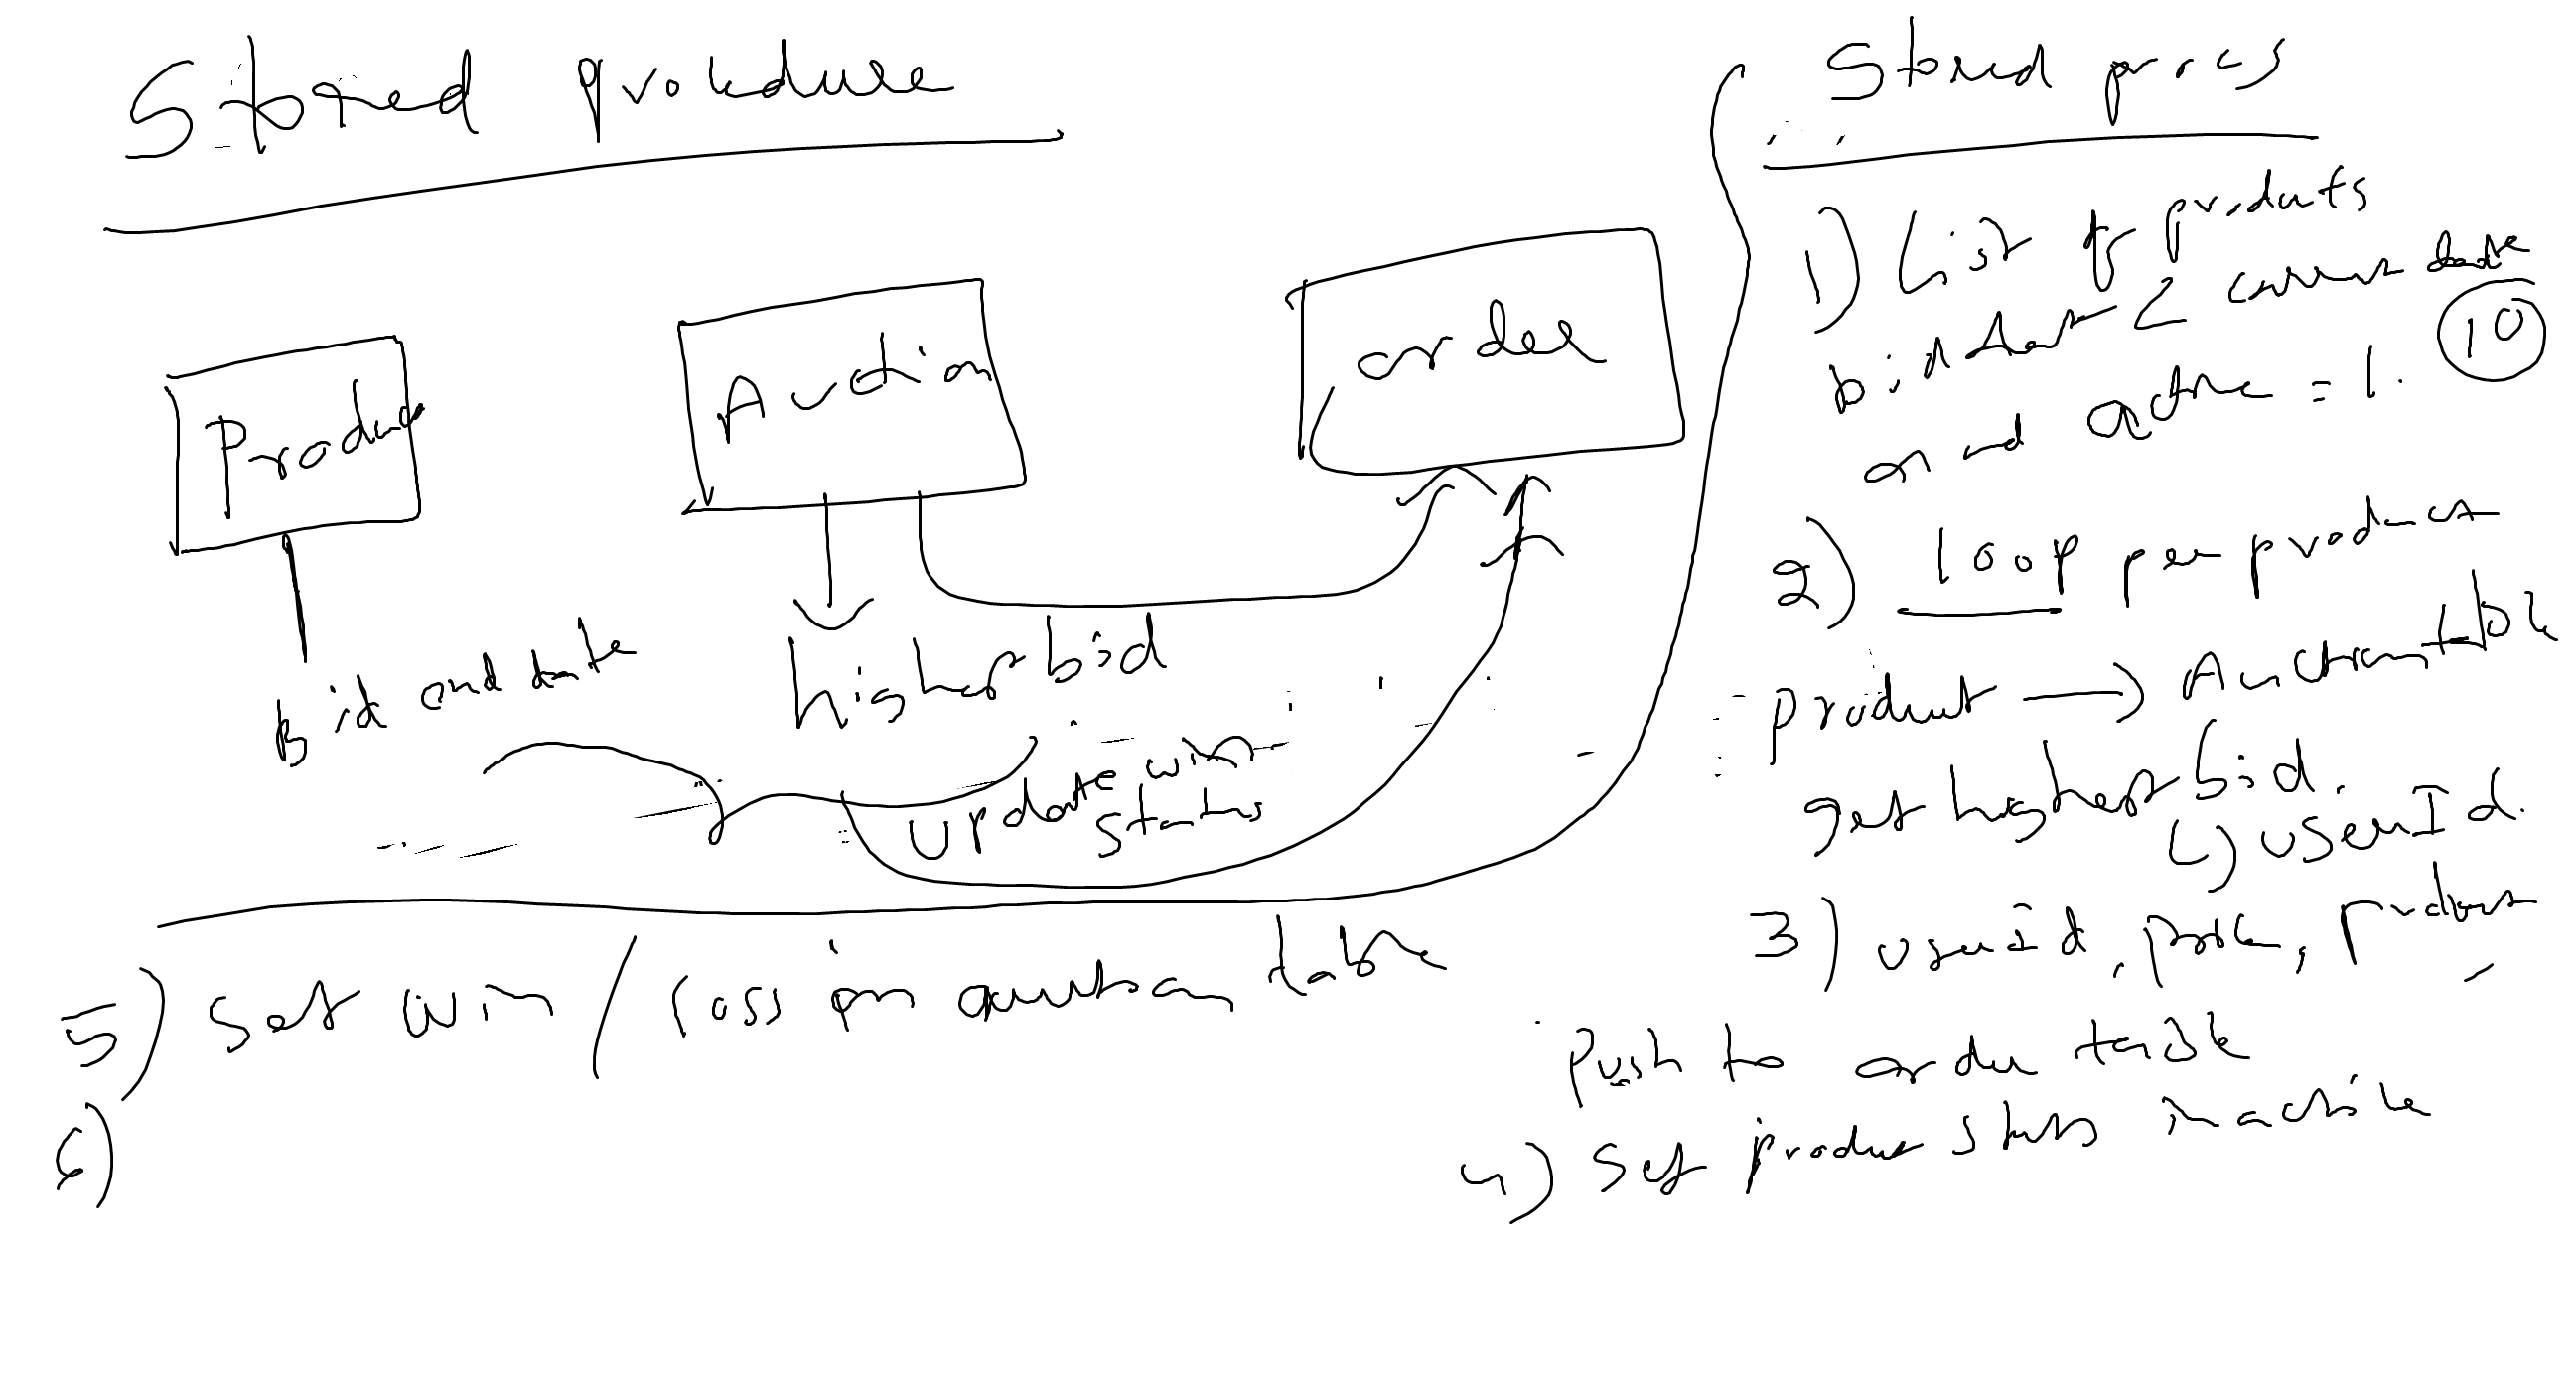 Stored procedure
Product
Auction
order
Bid end date
highest bid
update win
status
Stored procs
1) List of products
bid date < current date
and active = 1.
10
2) loop per product
product → Auction table
get highest bid.
↳ userId.
3) userId, price, product
Push to order table
4) Set product status inactive
5) Set win / loss in auction table
6)